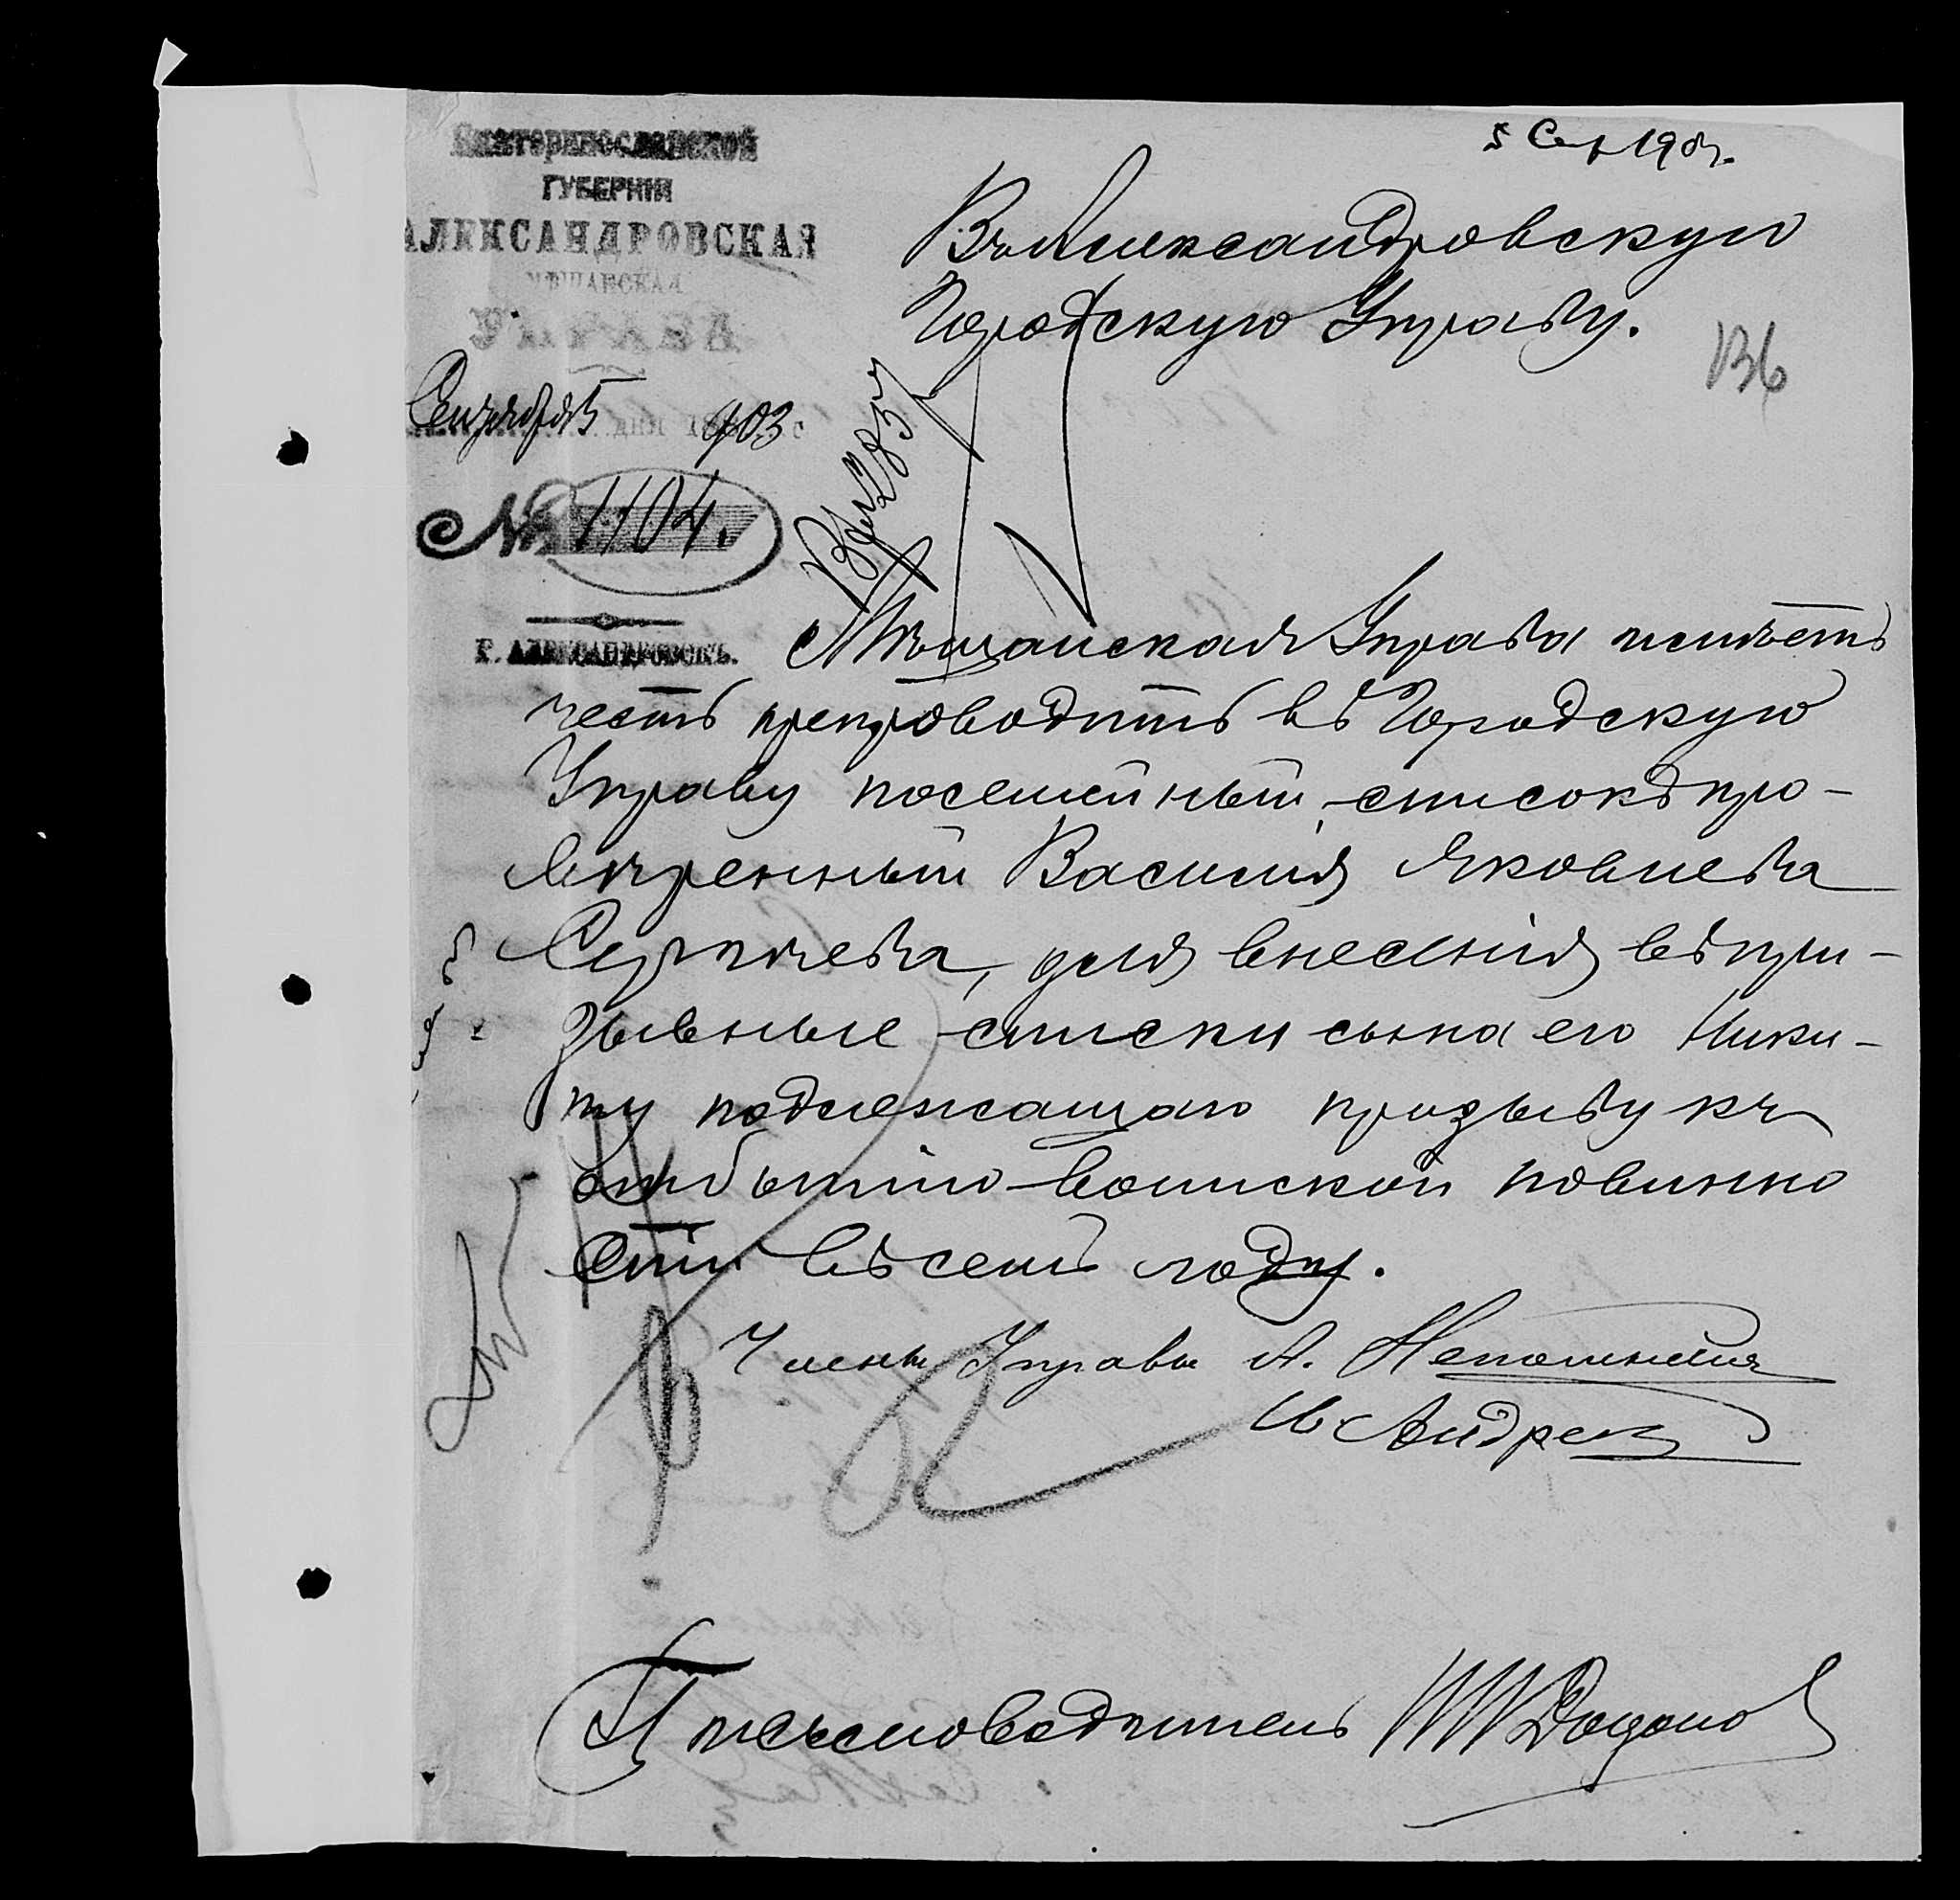 Екатеринославской
ГУБЕРНІИ
АЛЕКСАНДРОВСКАЯ
МѢЩАНСКАЯ
УПРАВА
Сентября 5 дня 1903
№ 1104.
Г. АЛЕКСАНДРОВСКЪ.
5 Сен 190
Въ Александровскую
Городскую Управу.
136
Мѣщанская Управа имѣетъ
честь препроводить въ Городскую
Управу посемейный списокъ про-
Василія Яковлева
для внесенія въ при-
зывные списки сына его Ники-
ту подлежащаго призыву къ
отбытію воинской повинно
сти въ семъ году.
Члены Управы А.
И Андрее
Письмоводитель Додоно